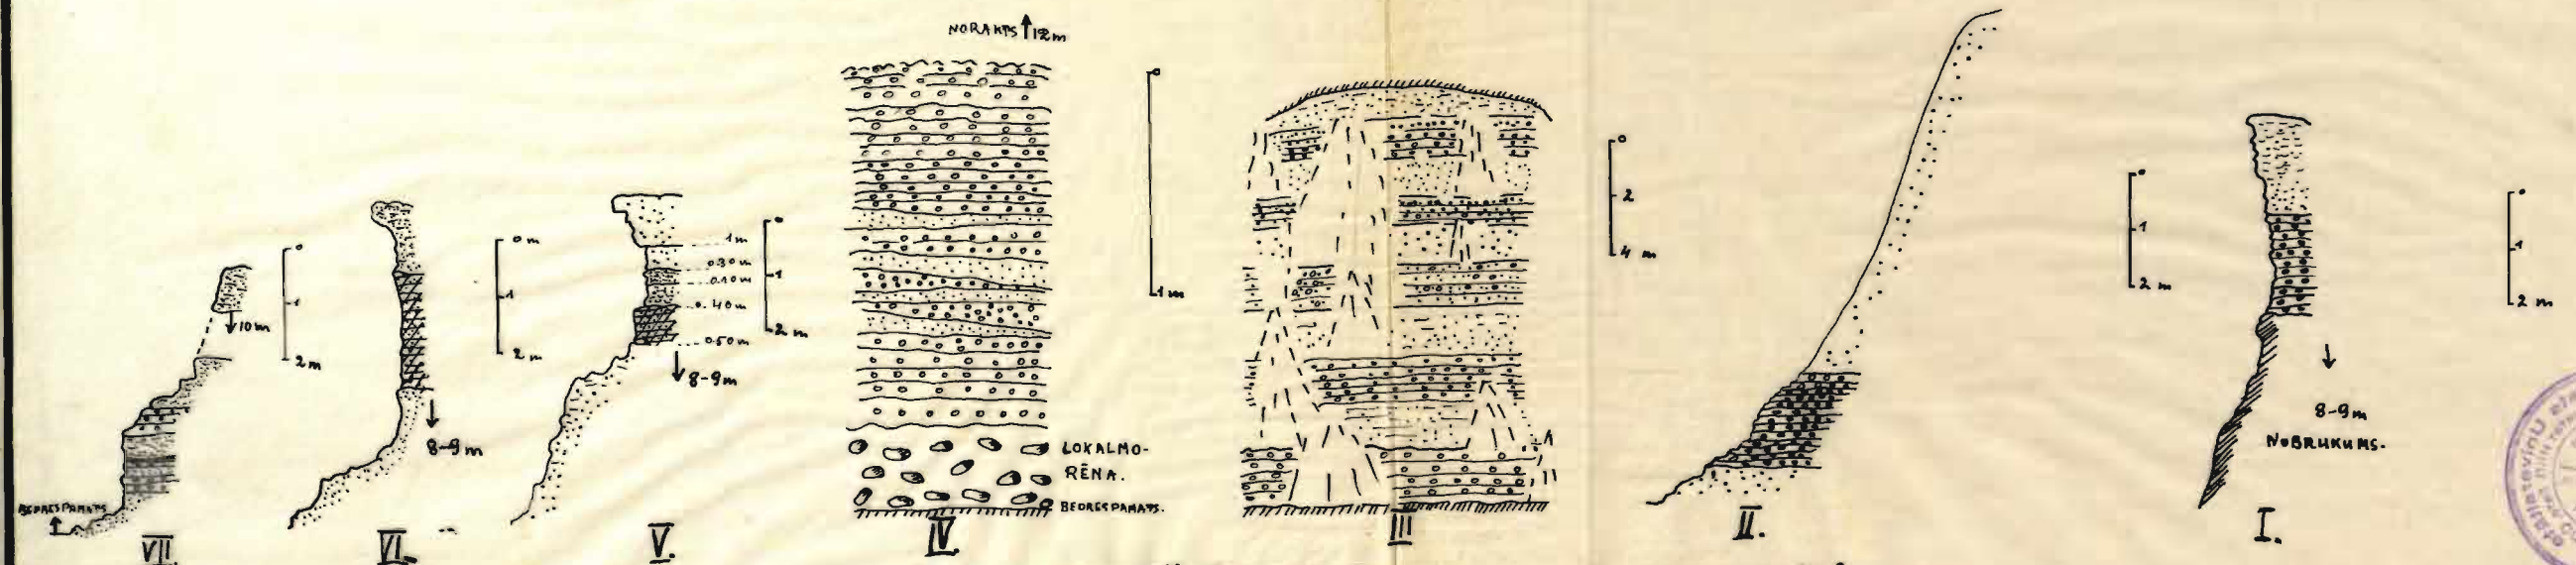 NORAKTS 12 m
0
1
2 m
10 m
BEDRES PAMATS
VII
0 m
1
2 m
8-9 m
VI.
1 m
0.30 m
0.10 m
0.40 m
0.50 m
0
1
2 m
8-9 m
V.
0
1 m
LOKALMO-
RĒNA.
BEDRES PAMATS.
IV.
0
2
4 m
III
0
1
2 m
II.
0
1
2 m
8-9 m
NOBRUKUMS.
I.